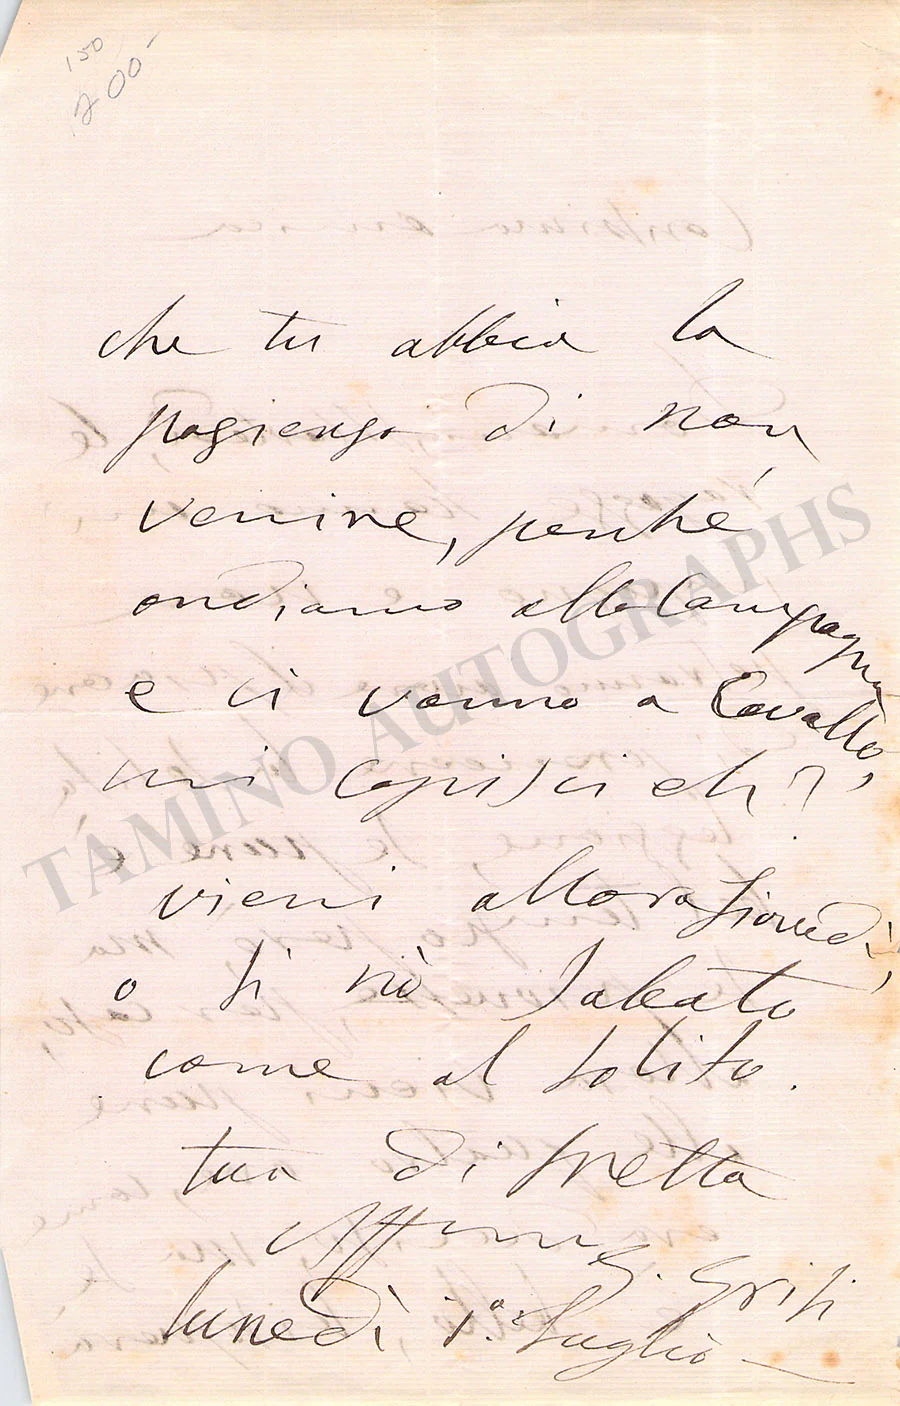 150
200-
che tu abbia la
pazienza di non
venire, perché
andiamo alla Campagna
e ci vanno a Cavallo,
mi capisci eh?
vieni allora Giovedì,
o si nò Sabato
come al solito.
tua di fretta
Affma G. Grisi
lunedì 1º: Luglio —
TAMINO AUTOGRAPHS